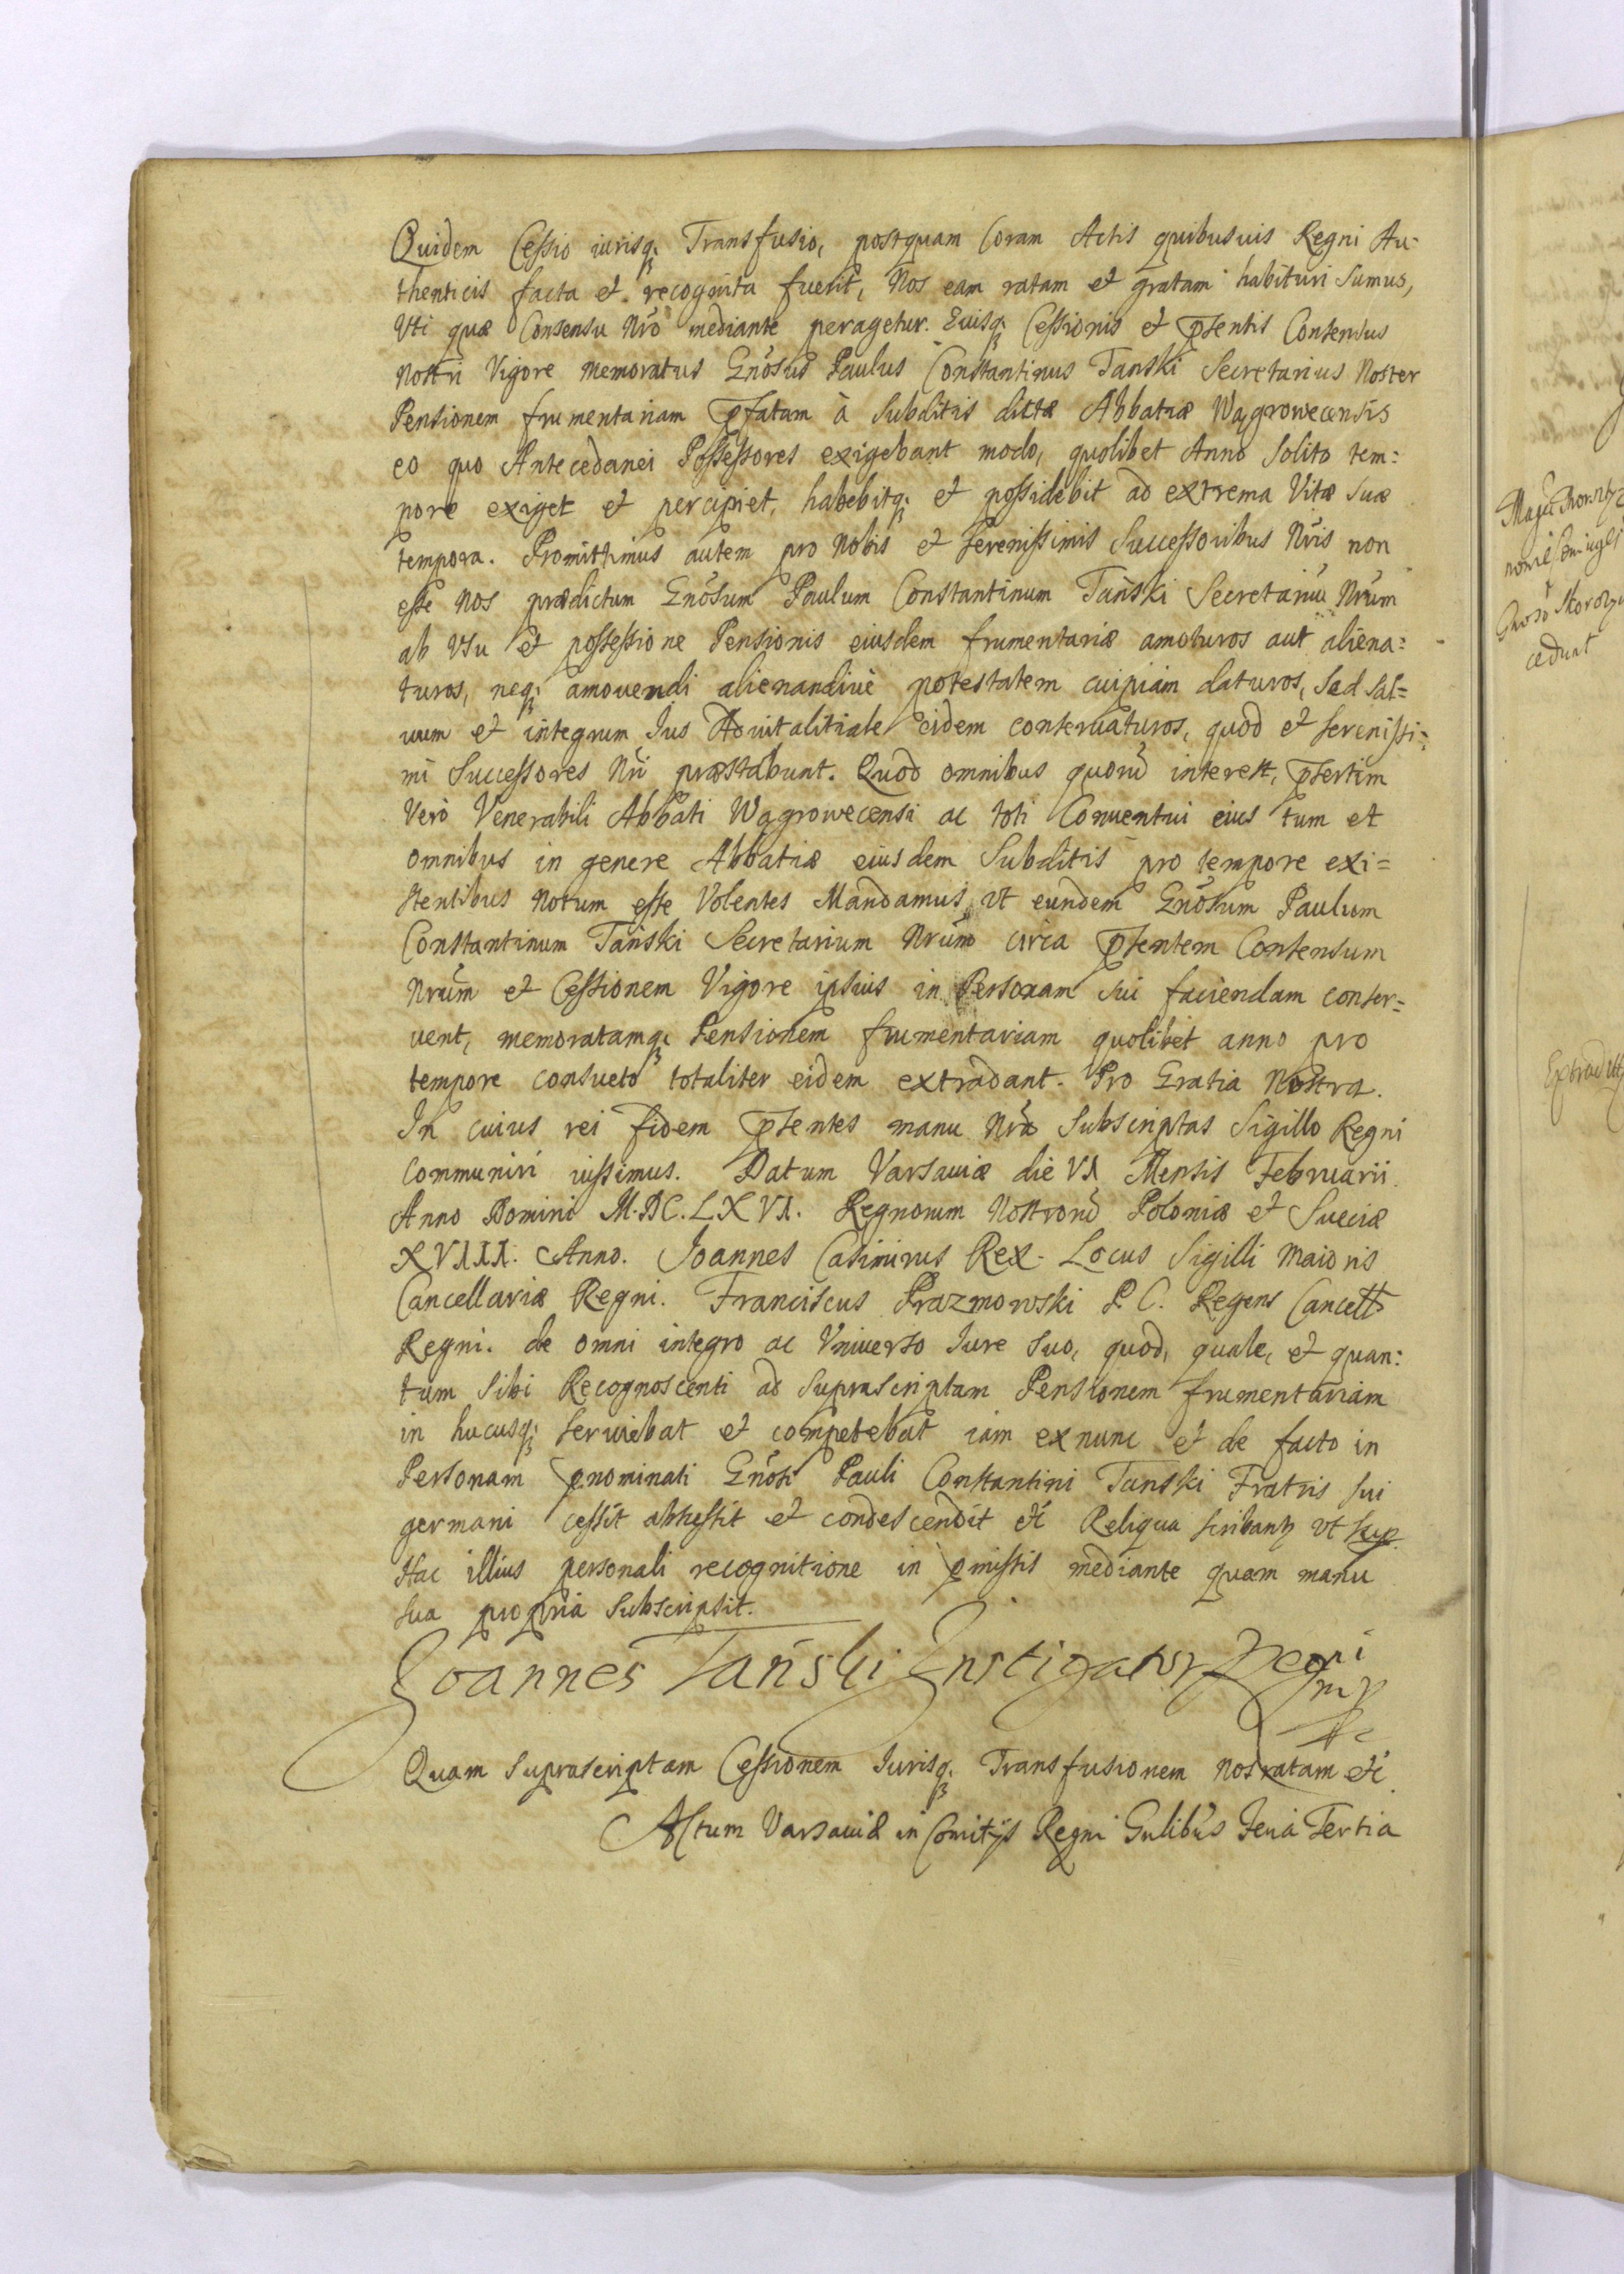 Quidem Cessio iurisq; Transfusio, postquam Coram Actis quibusuis Regni Au=
thenticis facta et recognita fuerit, Nos eam ratam et gratam habituri Sumus,
Vti quæ Consensu Nrõ mediante peragetur. Euisq; Cessionis et p̃sentis Consensus
Nostri Vigore memoratus Gnõsus Paulus Constantinus Tanski Secretarius Noster
Pensionem frumentariam p̃fatam à Subditis dictæ Abbatiæ Wągrowecensis
eo quo Antecedanei Possessores exigebant modo, quolibet Anno Solito tem=
pore exiget et percipiet, habebitq; et possidebit ad extrema Vitæ Suæ
tempora. Promittimus autem pro Nobis et Serenissimis Successoribus Nrĩs non
esse Nos prædictum Gnõsum Paulum Constantinum Tański Secretariũ Nrũm
ab Vsu et possessione Pensionis eiusdem frumentariæ amoturos aut aliena=
turos, neq; amouendi alienandiuè potestatem cuipiam daturos, Sed Sal=
uum et integrum Ius Aduitalitiale eidem conseruaturos, quod et Serenissi=
mi Successores Nrĩ præstabunt. Quod omnibus quorũ interest, p̃sertim
Verò Venerabili Abbati Wągrowecensi ac toti Conuentui eius tum et
omnibus in genere Abbatiæ eiusdem Subditis pro tempore exi=
stentibus Notum esse Volentes Mandamus, vt eundem Gnõsum Paulum
Constantinum Tański Secretarium Nrũm circa p̃sentem Consensum
Nrũm et Cessionem Vigore ipsius in Personam sui faciendam conser=
uent, memoratamq; Pensionem frumentariam quolibet anno pro
tempore consueto totaliter eidem extradant. Pro Gratia Nostra.
In cuius rei fidem p̃sentes manu Nrã Subscriptas Sigillo Regni
Communiri iussimus. Datum Varsauiæ die VI Mensis Februarii
Anno Domini M.DC.LXVI. Regnorum Nostrorũ Poloniæ et Sueciæ
XVIII. Anno. Joannes Casimirus Rex. Locus Sigilli Maioris
Cancellariæ Regni. Franciscus Prazmowski P. C. Regens Cancell
Regni. de omni integro ac Vniuerso Iure Suo, quod, quale, et quan=
tum Sibi Recognoscenti ad Suprascriptam Pensionem frumentariam
in hucusq; Seruiebat et competebat iam exnunc et de facto in
Personam p̃nominati Gnõsi Pauli Constantini Tanski Fratris Sui
germani cessit abscessit et condescendit etc̃ Reliqua scribantꝛ vt Sup
Hac illius personali recognitione in p̃missis mediante quam manu
sua propria Subscripsit.
Joannes Tański Instigator Regni
mp
Quam Suprascriptam Cessionem Iurisq; Transfusionem Nos ratam etc̃
Actum Varsauiæ in Comitijs Regni Gnlibũs Feria Tertia
cedunt